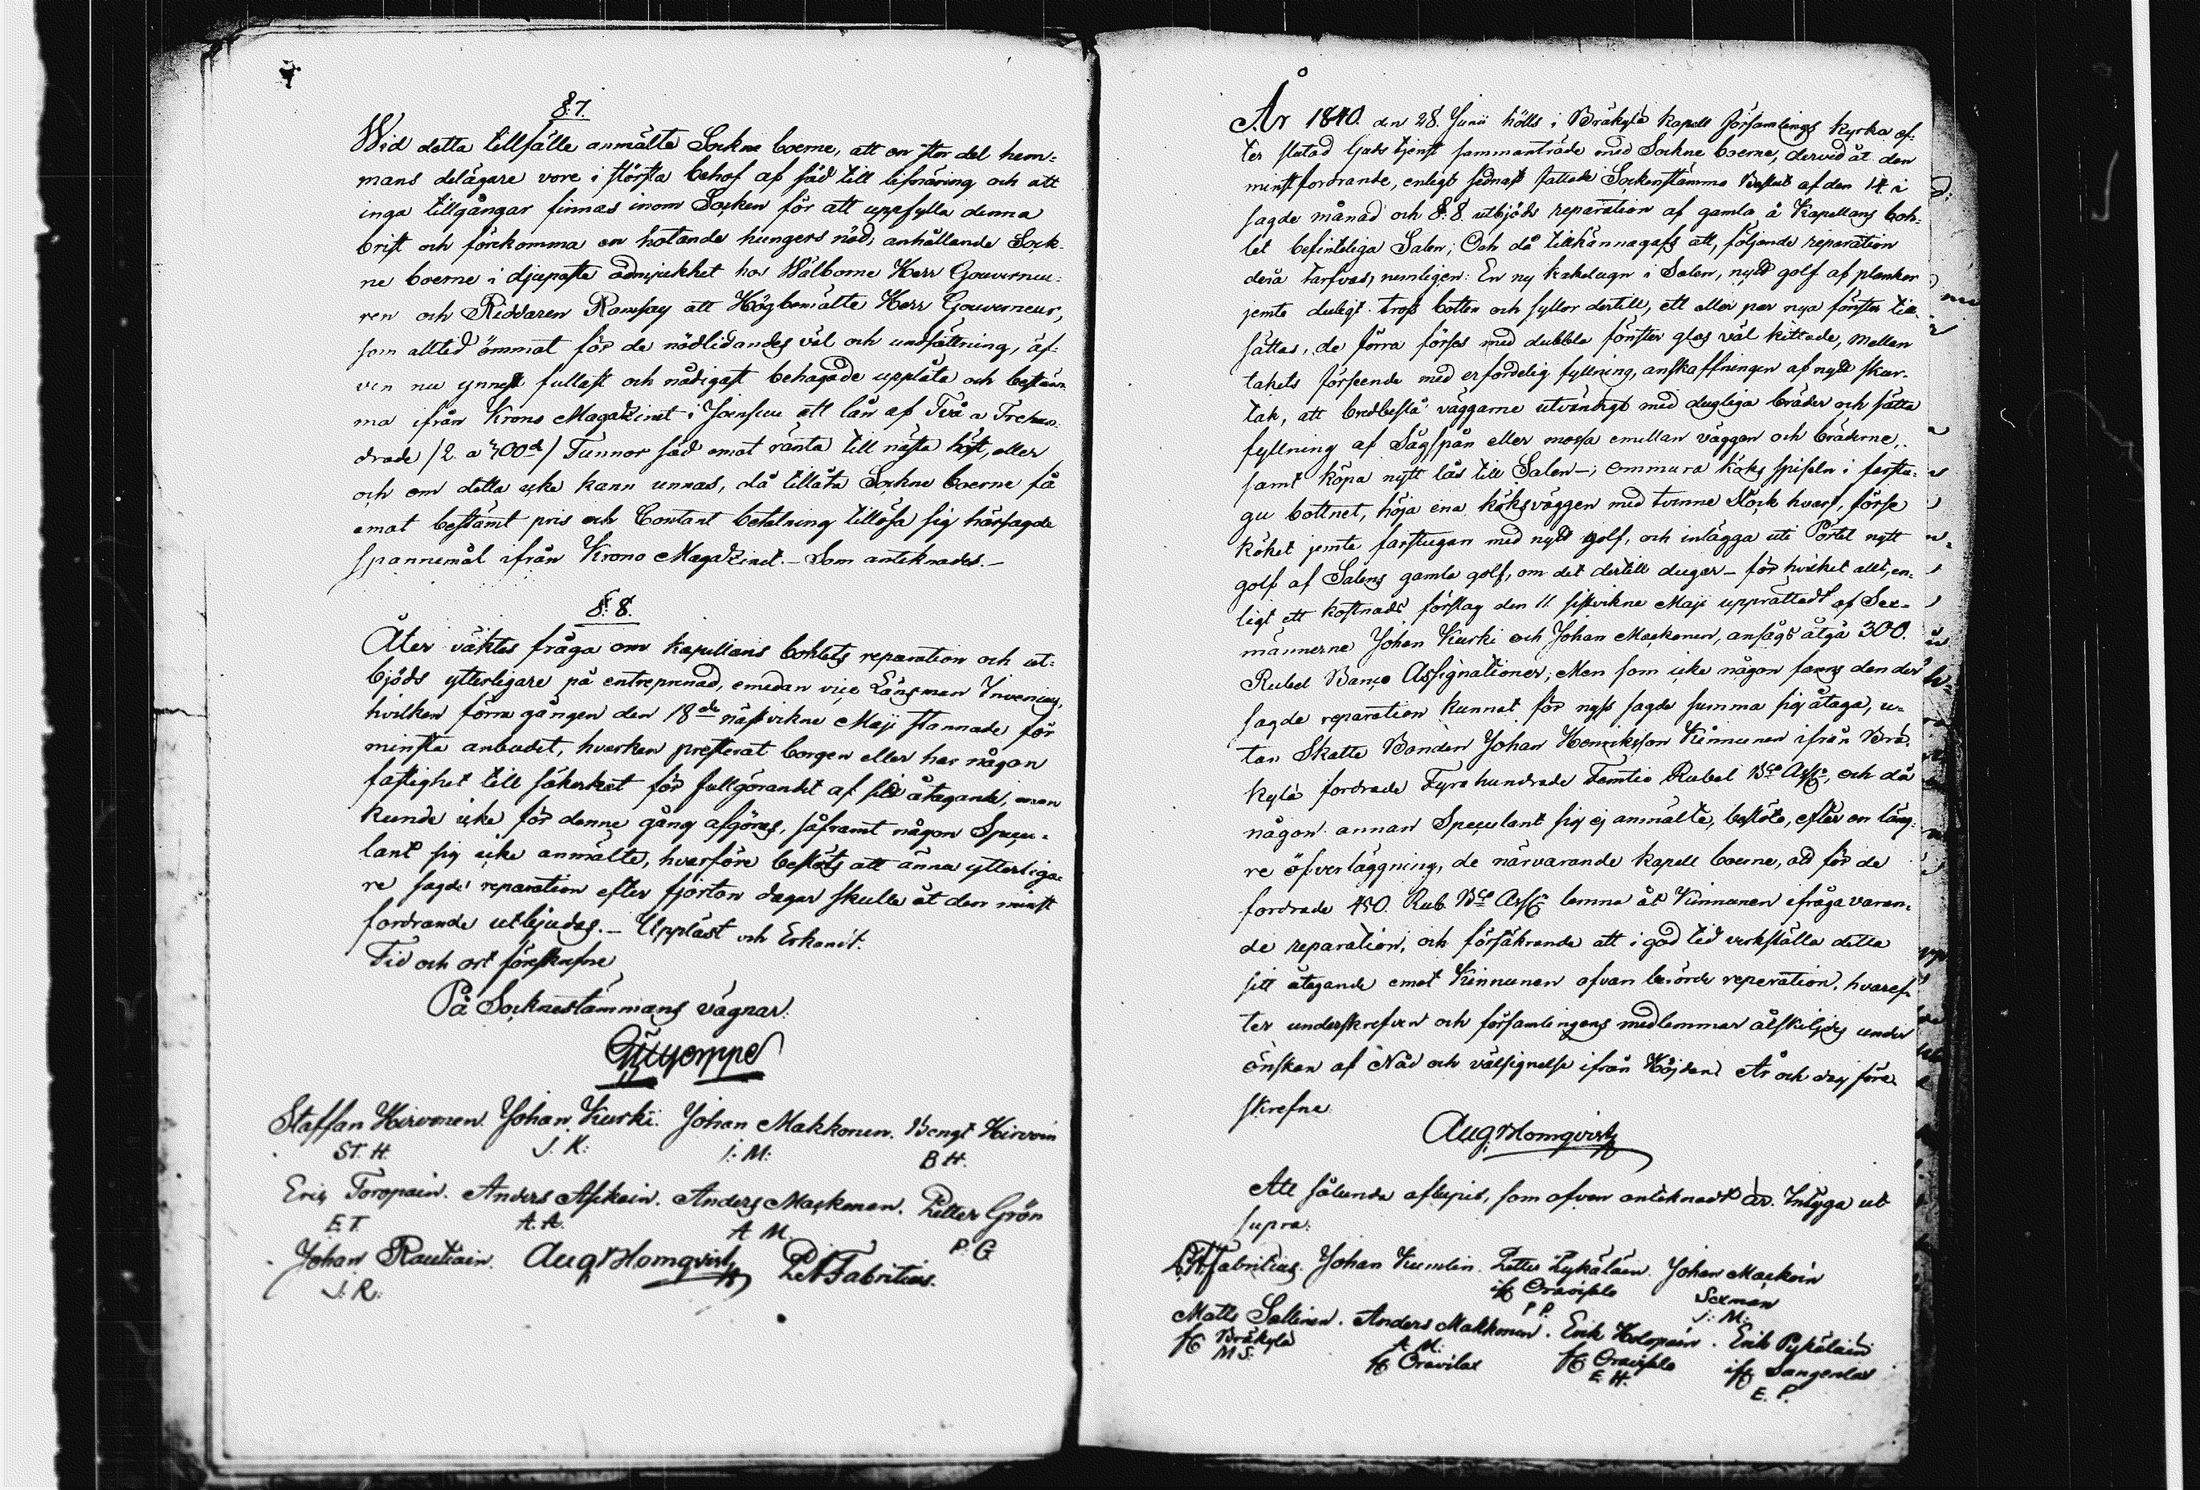 §: 7.
Wid detta tillfälle anmälte Sockne boerne, att en stor del hem=
mans delägare vore i största behof af säd till lifnäring och att
inga tillgångar finnas inom Socken för att uppfylla denna
brist och förekomma en hotande hungers nöd, anhållande Sock=
ne boerne i djupaste ödmjukhet hos Wälborne Herr Gouverneu=
ren och Riddaren Ramsay att Högbemälte Herr Gouverneur,
som alltid ömmat för de nödlidandes väl och undsättning, äf=
ven nu ynnest fullast och nådigast behagade upplåta och bestäm=
ma ifrån Krono Magazinet i Joensuu ett lån af Två a Trehun=
drade /2 a 300de/ Tunnor säd emot ränta till nästa höst, eller
och om detta icke kann unnas, då tillåta Sockne boerne få
emot bestämt pris och Contant betalning tillösa sig härsagde
spannemål ifrån Krono Magazinet. – Som antecknades. –
§: 8.
Åter väktes fråga om kapellans bohlets reparation och ut=
bjöds ytterligare på entreprenad, emedan vice Länsman
hvilken förra gången den 18de nästvikne Maji stannade för
minsta anbudet, hvarken presterat borgen eller har någon
fastighet till säkerhet för fullgörandet af sitt åtagande, men
kunde icke för denne gång afgöras, såframt någon Specu=
lant sig icke anmälte, hvarföre beslöts att ännu ytterliga=
re sagde reparation efter fjorton dagar skulle åt den minst
fordrande utbjudas. – Uppläst och Erkändt.
Tid och ort föreskrefne
På Socknestämmans vägnar.
Staffan Hirvonen. Johan Kurki. Johan Makkonen. Bengt Hirvoin
ST. H. J. K: J: M: B H.
Eric Toropain. Anders Asikain. Anders Mackonen. Petter Grön
E. T. A. A. A M. P. G
Johan Rautiain. Aug Holmqvist P A Fabritius.
J. R:
År 1840. den 28. Junii hölls i Bräkylä kapell församlings kyrka ef=
ter slutad Guds tjenst sammanträde med Sockne boerne, dervid åt den
minst fordrande, enligt sednast fattade Sockenstämmo Beslut af den 14 i
sagde månad och §: 8. utbjöds reparation af gamla å Kapellans boh=
let befinteliga Salen; Och då tillkännagafs att, följande reparation
derå tarfvas, nemligen: En ny kakelugn i Salen, nytt golf af plankor
jemte dugligt tross botten och syllor dertill, ett eller par nya fönster till
sättas, de förra förses med dubbla fönster glas väl kittade, Mellan
takets förseende med erforderlig fyllning, anskaffningen af nytt skor=
tak, att brädbeslå väggarne utvändigt med dugliga bräder och sätta
fyllning af Sågspån eller mossa emellan väggen och bräderne,
samt köpa nytt lås till Salen –; ommura köks spiseln i farstu=
gu bottnet, höja ena köksväggen med tvenne Stock hvarf, förse
köket jemte farstugan med nytt golf, och inlägga uti Pörtet nytt
golf af Salens gamla golf, om det dertill duger – för hvilket allt, en=
ligt ett kostnads förslag den 11 sistvikne Maji upprättadt af Sex=
männerne Johan Kurki och Johan Mackonen, ansågs åtgå 300.
Rubel Banco Assignationer; Men som icke någon fanns den der
sagde reparation kunnat för nyss sagde summa sig åtaga, u=
tan Skatte Bonden Johan Henricsson Kinnunen ifrån Brä=
kylä fordrade Fyra hundrade Femtio Rubel Bco Assr, och då
någon annan Speculant sig ej anmälte, beslöto, efter en läng=
re öfverläggning, de närvarande kapell boerne, att för de
fordrade 450. Rub. Bco Assr lemna åt Kinnunen ifråga varan=
de reparation, och försäkrande att i god tid verkställa detta
sitt åtagande emot Kinnunen ofvan berörde reperation, hvaref=
ter underskrefven och församlingens medlemmar åtskiljdes under
önskan af Nåd och välsignelse ifrån Höjden. År och dag före=
skrefne
Aug Holmqvist
Att sålunda aflupit, som ofvan antecknadt är. Intyga ut
supra.
P A Fabritius. Johan Kumlin. Petter Pykäläin. Johan Mackoin
if Oravisalo Sexman
P P. J: M:
Matts Sallinen. Anders Makkonen. Erik Holopain. Erik Pykäläin
fr Bräkylä A M: fr Oravisalo if
M S: fr Oravilax E H. E. P.